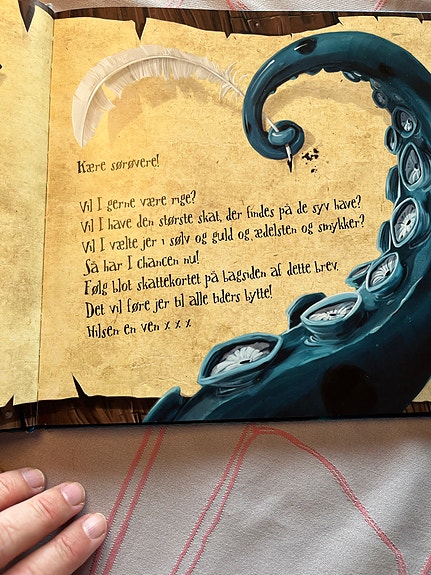 Kære sørøvere!
Vil I gerne være rige?
Vil I have den største skat, der findes på de syv have?
Vil I vælte jer i sølv og guld og ædelsten og smykker?
Så har I chancen nu!
Følg blot skattekortet på bagsiden af dette brev.
Det vil føre jer til alle tiders bytte!
Hilsen en ven x x x